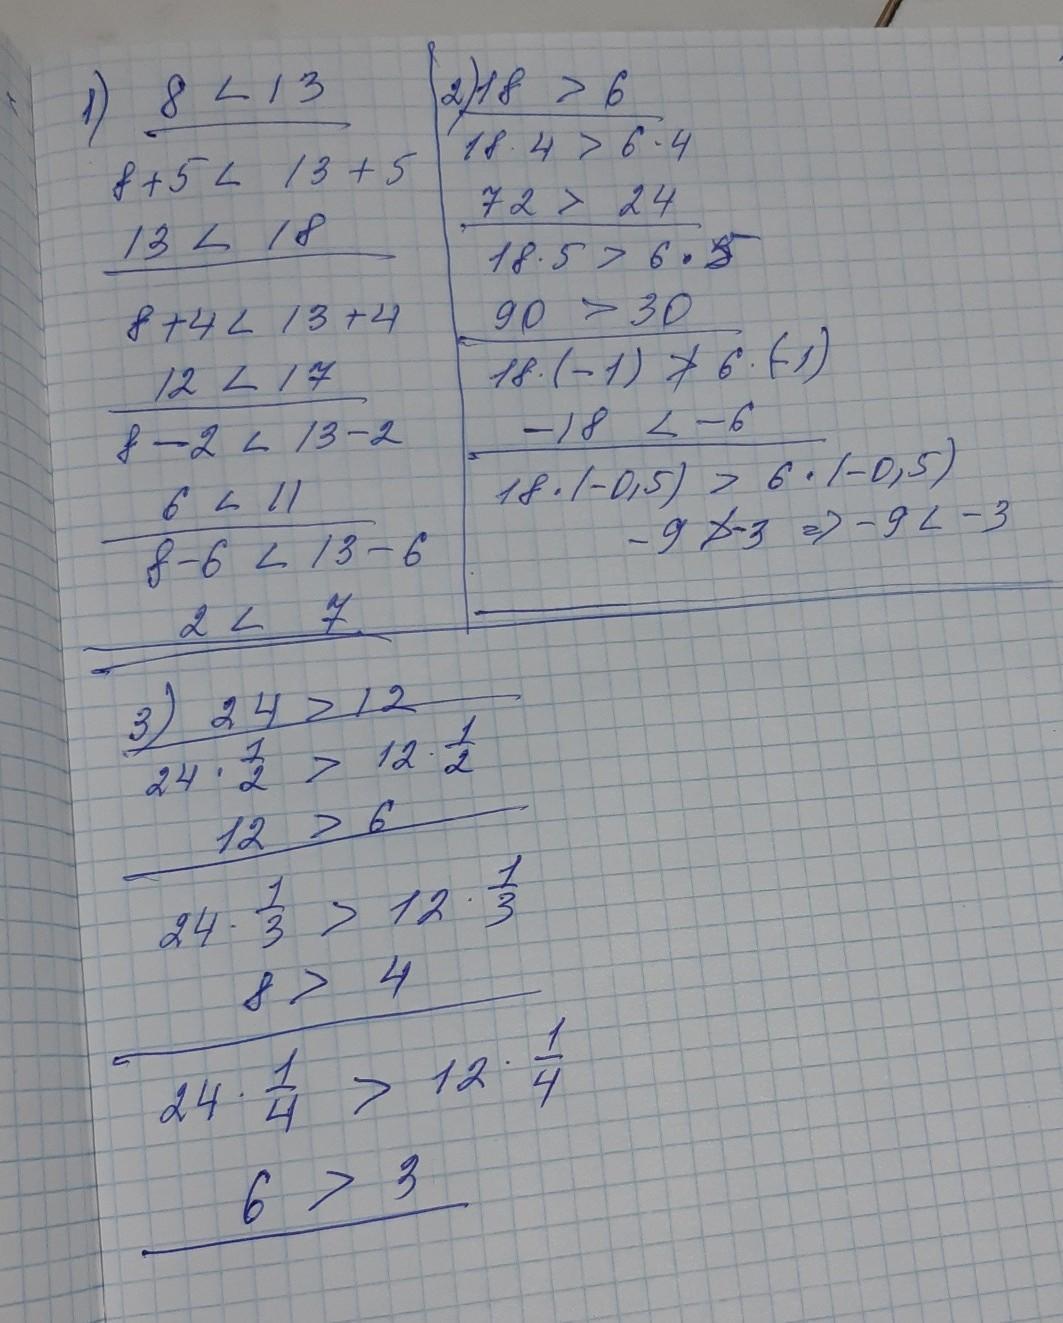 1) 8 < 13
8+5 < 13+5
13 < 18
8+4 < 13+4
12 < 17
8-2 < 13-2
6 < 11
8-6 < 13-6
2 < 7
2) 18 > 6
18·4 > 6·4
72 > 24
18·5 > 6·5
90 > 30
18·(-1) ≯ 6·(-1)
-18 < -6
18·(-0,5) > 6·(-0,5)
-9 ≯ -3 ⇒ -9 < -3
3) 24 > 12
24·1/2 > 12·1/2
12 > 6
24·1/3 > 12·1/3
8 > 4
24·1/4 > 12·1/4
6 > 3